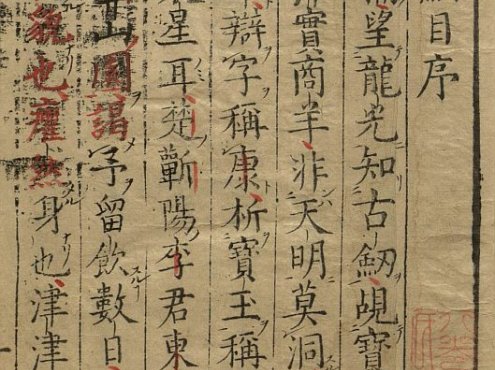 目序
望龍光知古劒覘寶
實商羊非天明莫洞
辯字稱康析寶玉稱
星耳楚蘄陽李君東
山園謁予留飲數日
貌也癯然身也津津